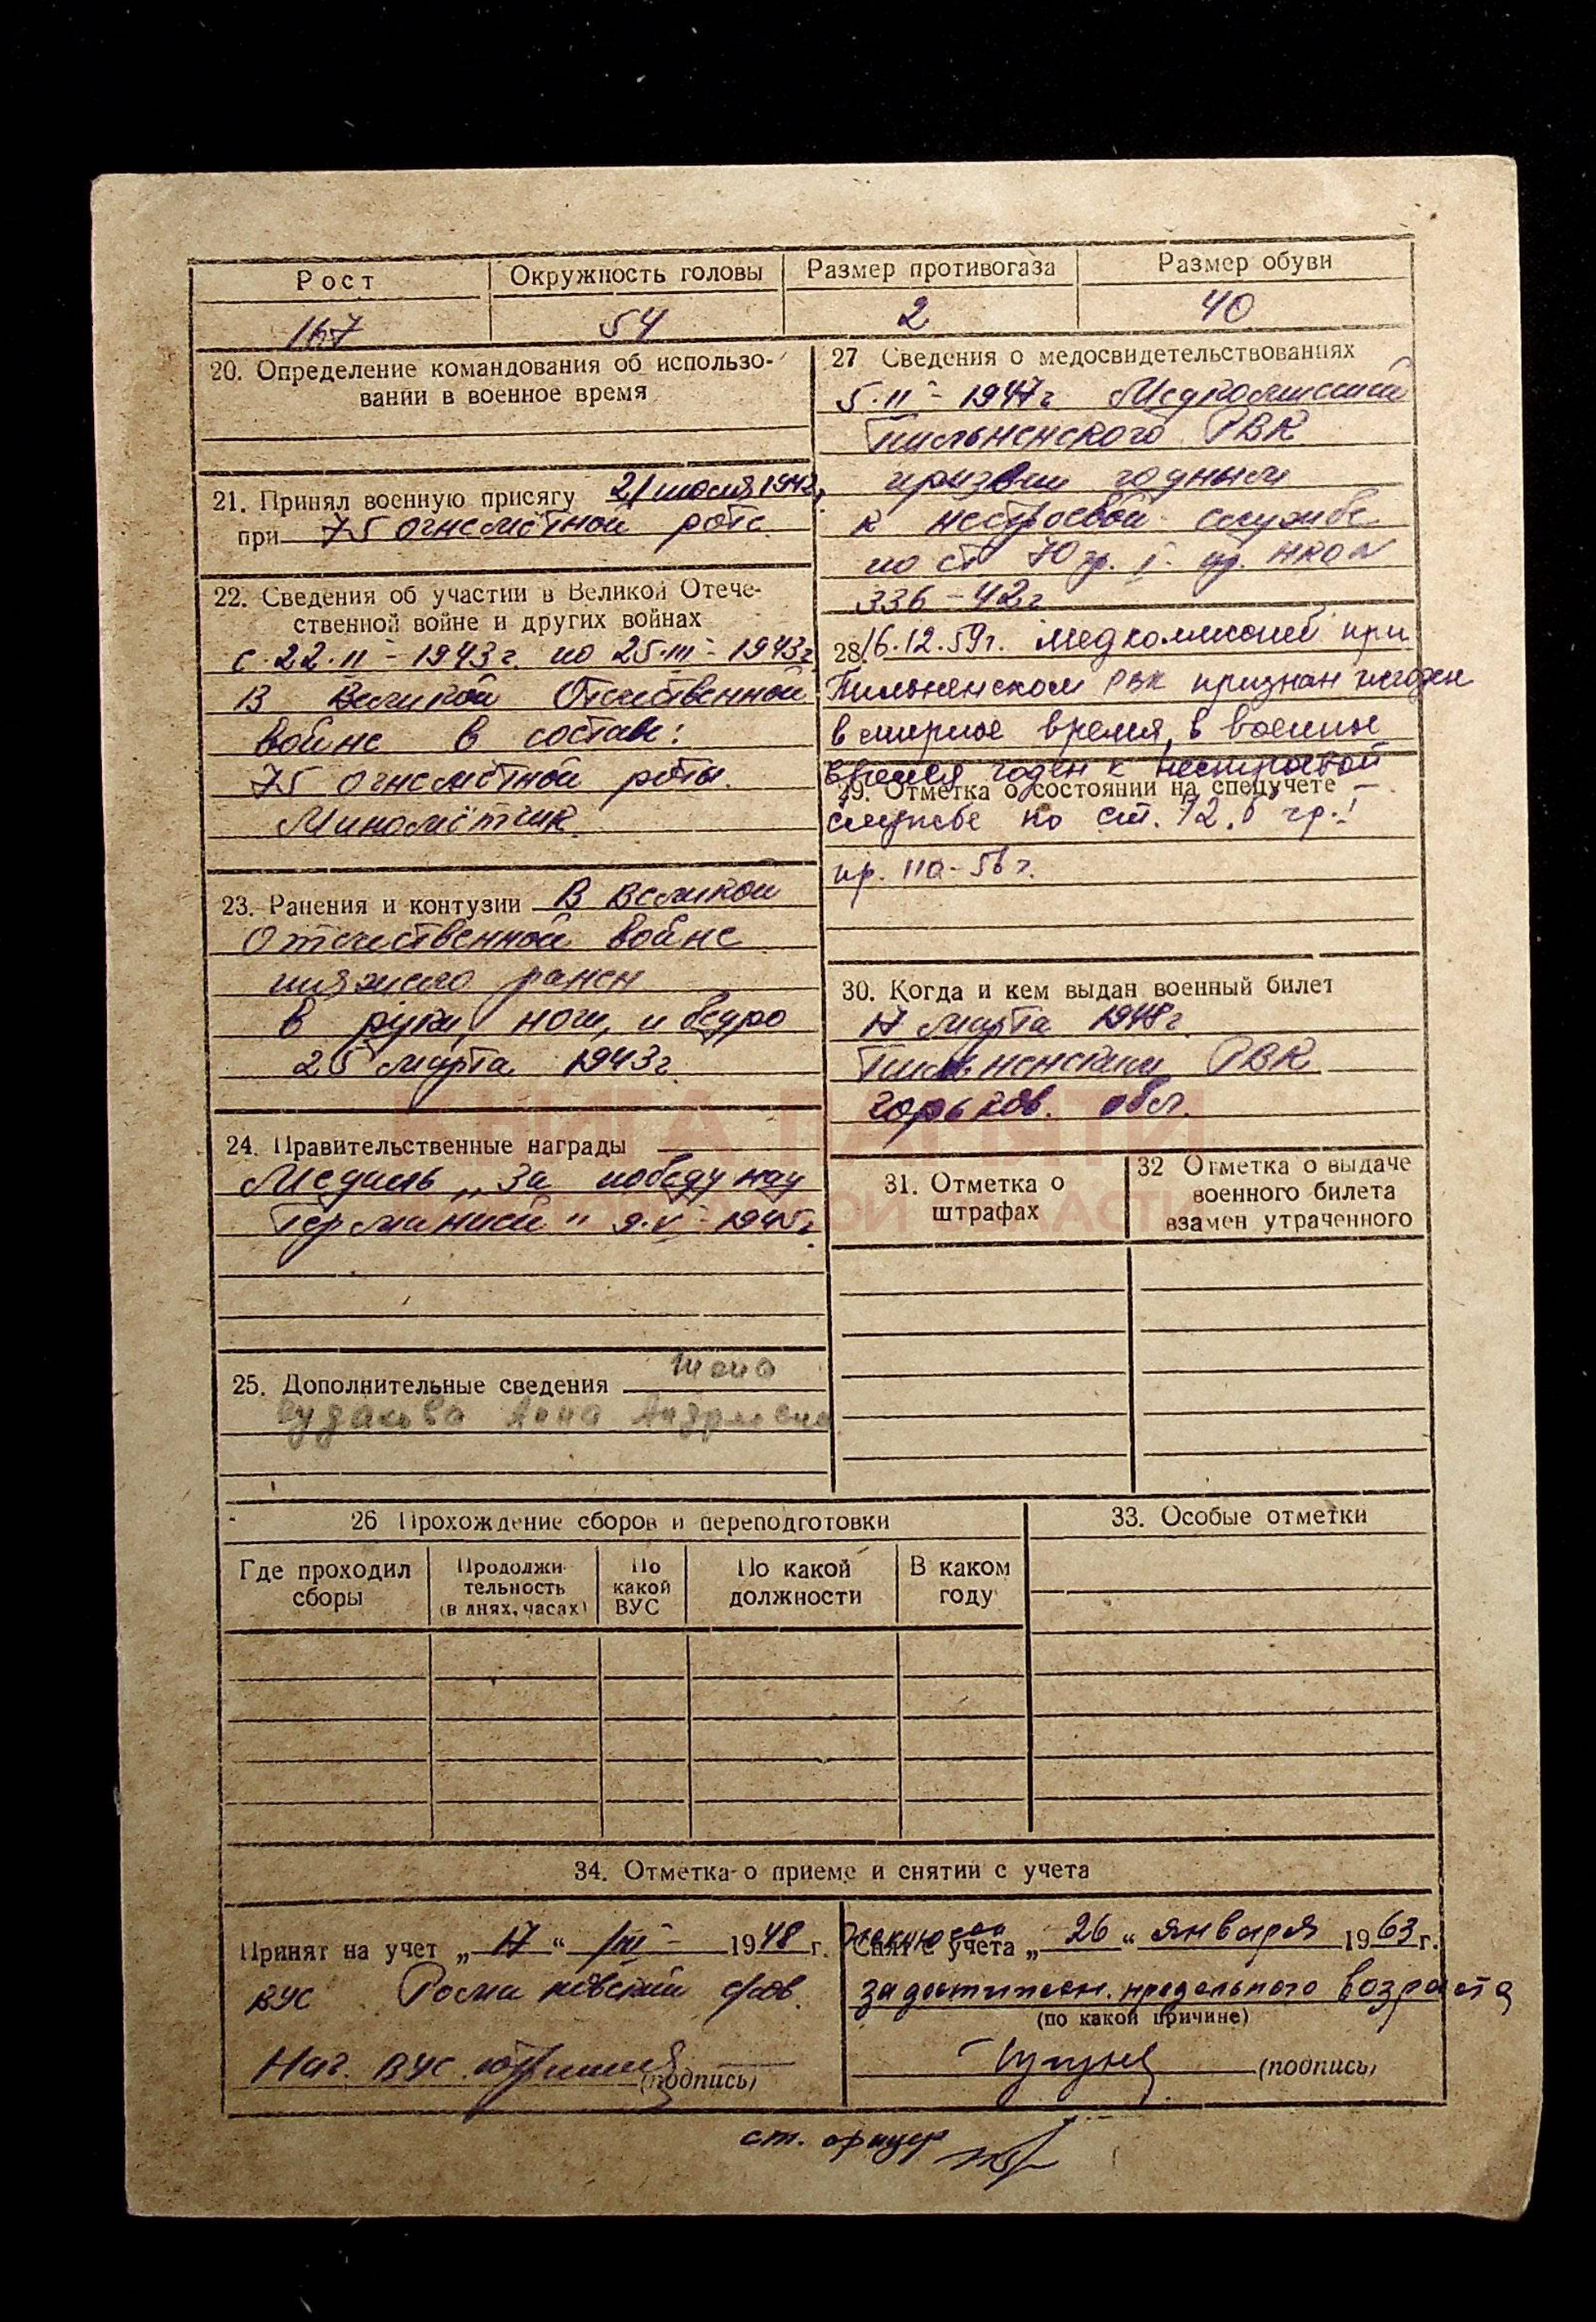 Рост Окружность головы Размер противогаза Размер обуви
167 54 2 40
20. Определение командования об использо-
вании в военное время
21. Принял военную присягу 21 июля 1942
при 75 огнемётной роте
22. Сведения об участии в Великой Отече-
ственной войне и других войнах
с 22.II-1943г. по 25.III-1943г
В Великой Отечественной
войне в составе:
75 огнемётной роты.
Миномётчик
23. Ранения и контузии В Великой
Отечественной войне
тяжело ранен
в руки, ноги, и бедро
25 марта 1943г
24. Правительственные награды
Медаль „За победу над
Германией" 9.V-1945г.
25. Дополнительные сведения жена
Анна Андреевна
27 Сведения о медосвидетельствованиях
5.II-1947г Медкомиссией
Пильненского РВК
признан годным
к нестроевой службе
по ст 70 гр. I пр. НКО №
336-42г
28. 16.12.59г. медкомиссией при
Пильненском РВК признан негоден
в мирное время, в военное
время годен к нестроевой
29. Отметка о состоянии на спецучете
службе по ст. 12,б гр. I
пр. 110-56г.
30. Когда и кем выдан военный билет
17 марта 1948г.
Пильненским РВК
Горьков. обл.
КНИГА ПАМЯТИ
НИЖЕГОРОДСКОЙ ОБЛАСТИ
31. Отметка о
штрафах
32 Отметка о выдаче
военного билета
взамен утраченного
26 Прохождение сборов и переподготовки
Где проходил
сборы
Продолжи-
тельность
(в днях, часах)
По
какой
ВУС
По какой
должности
В каком
году
33. Особые отметки
34. Отметка о приеме и снятии с учета
Принят на учет „17" III 1948 г.
ВУС
Нач. ВУС
(подпись)
Снят с учета „26" января 1963 г.
за достижен. предельного возраста
(по какой причине)
(подпись)
ст. офицер